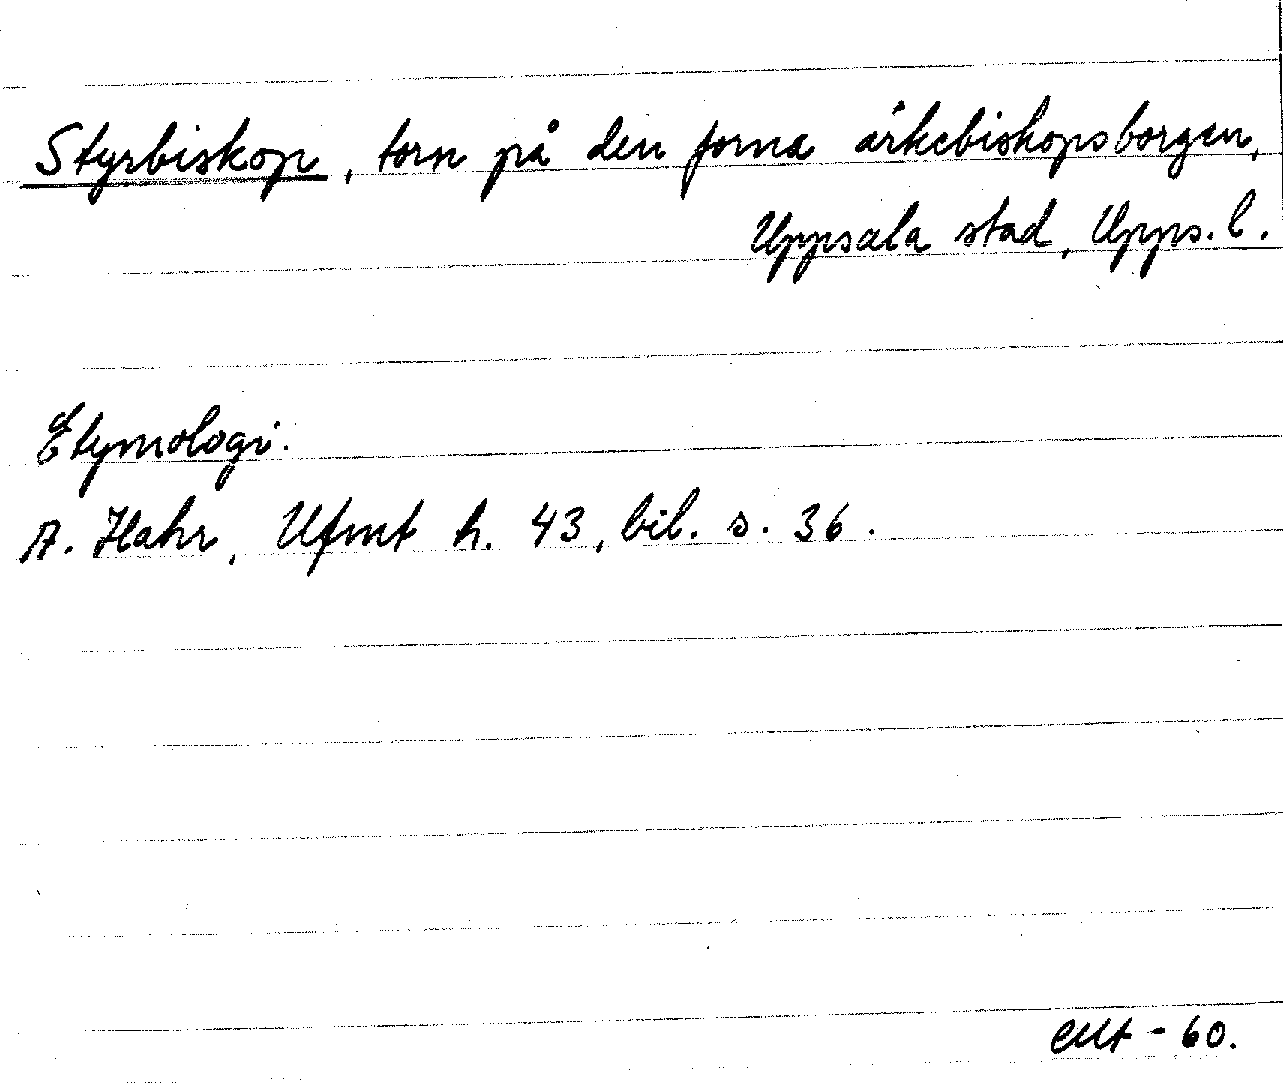 Styrbiskop, torn på den forna ärkebiskopsborgen,
Uppsala stad, Upps. l.
Etymologi:
A. Hahr, Ufmt h. 43, bil. s. 36.
- 60.